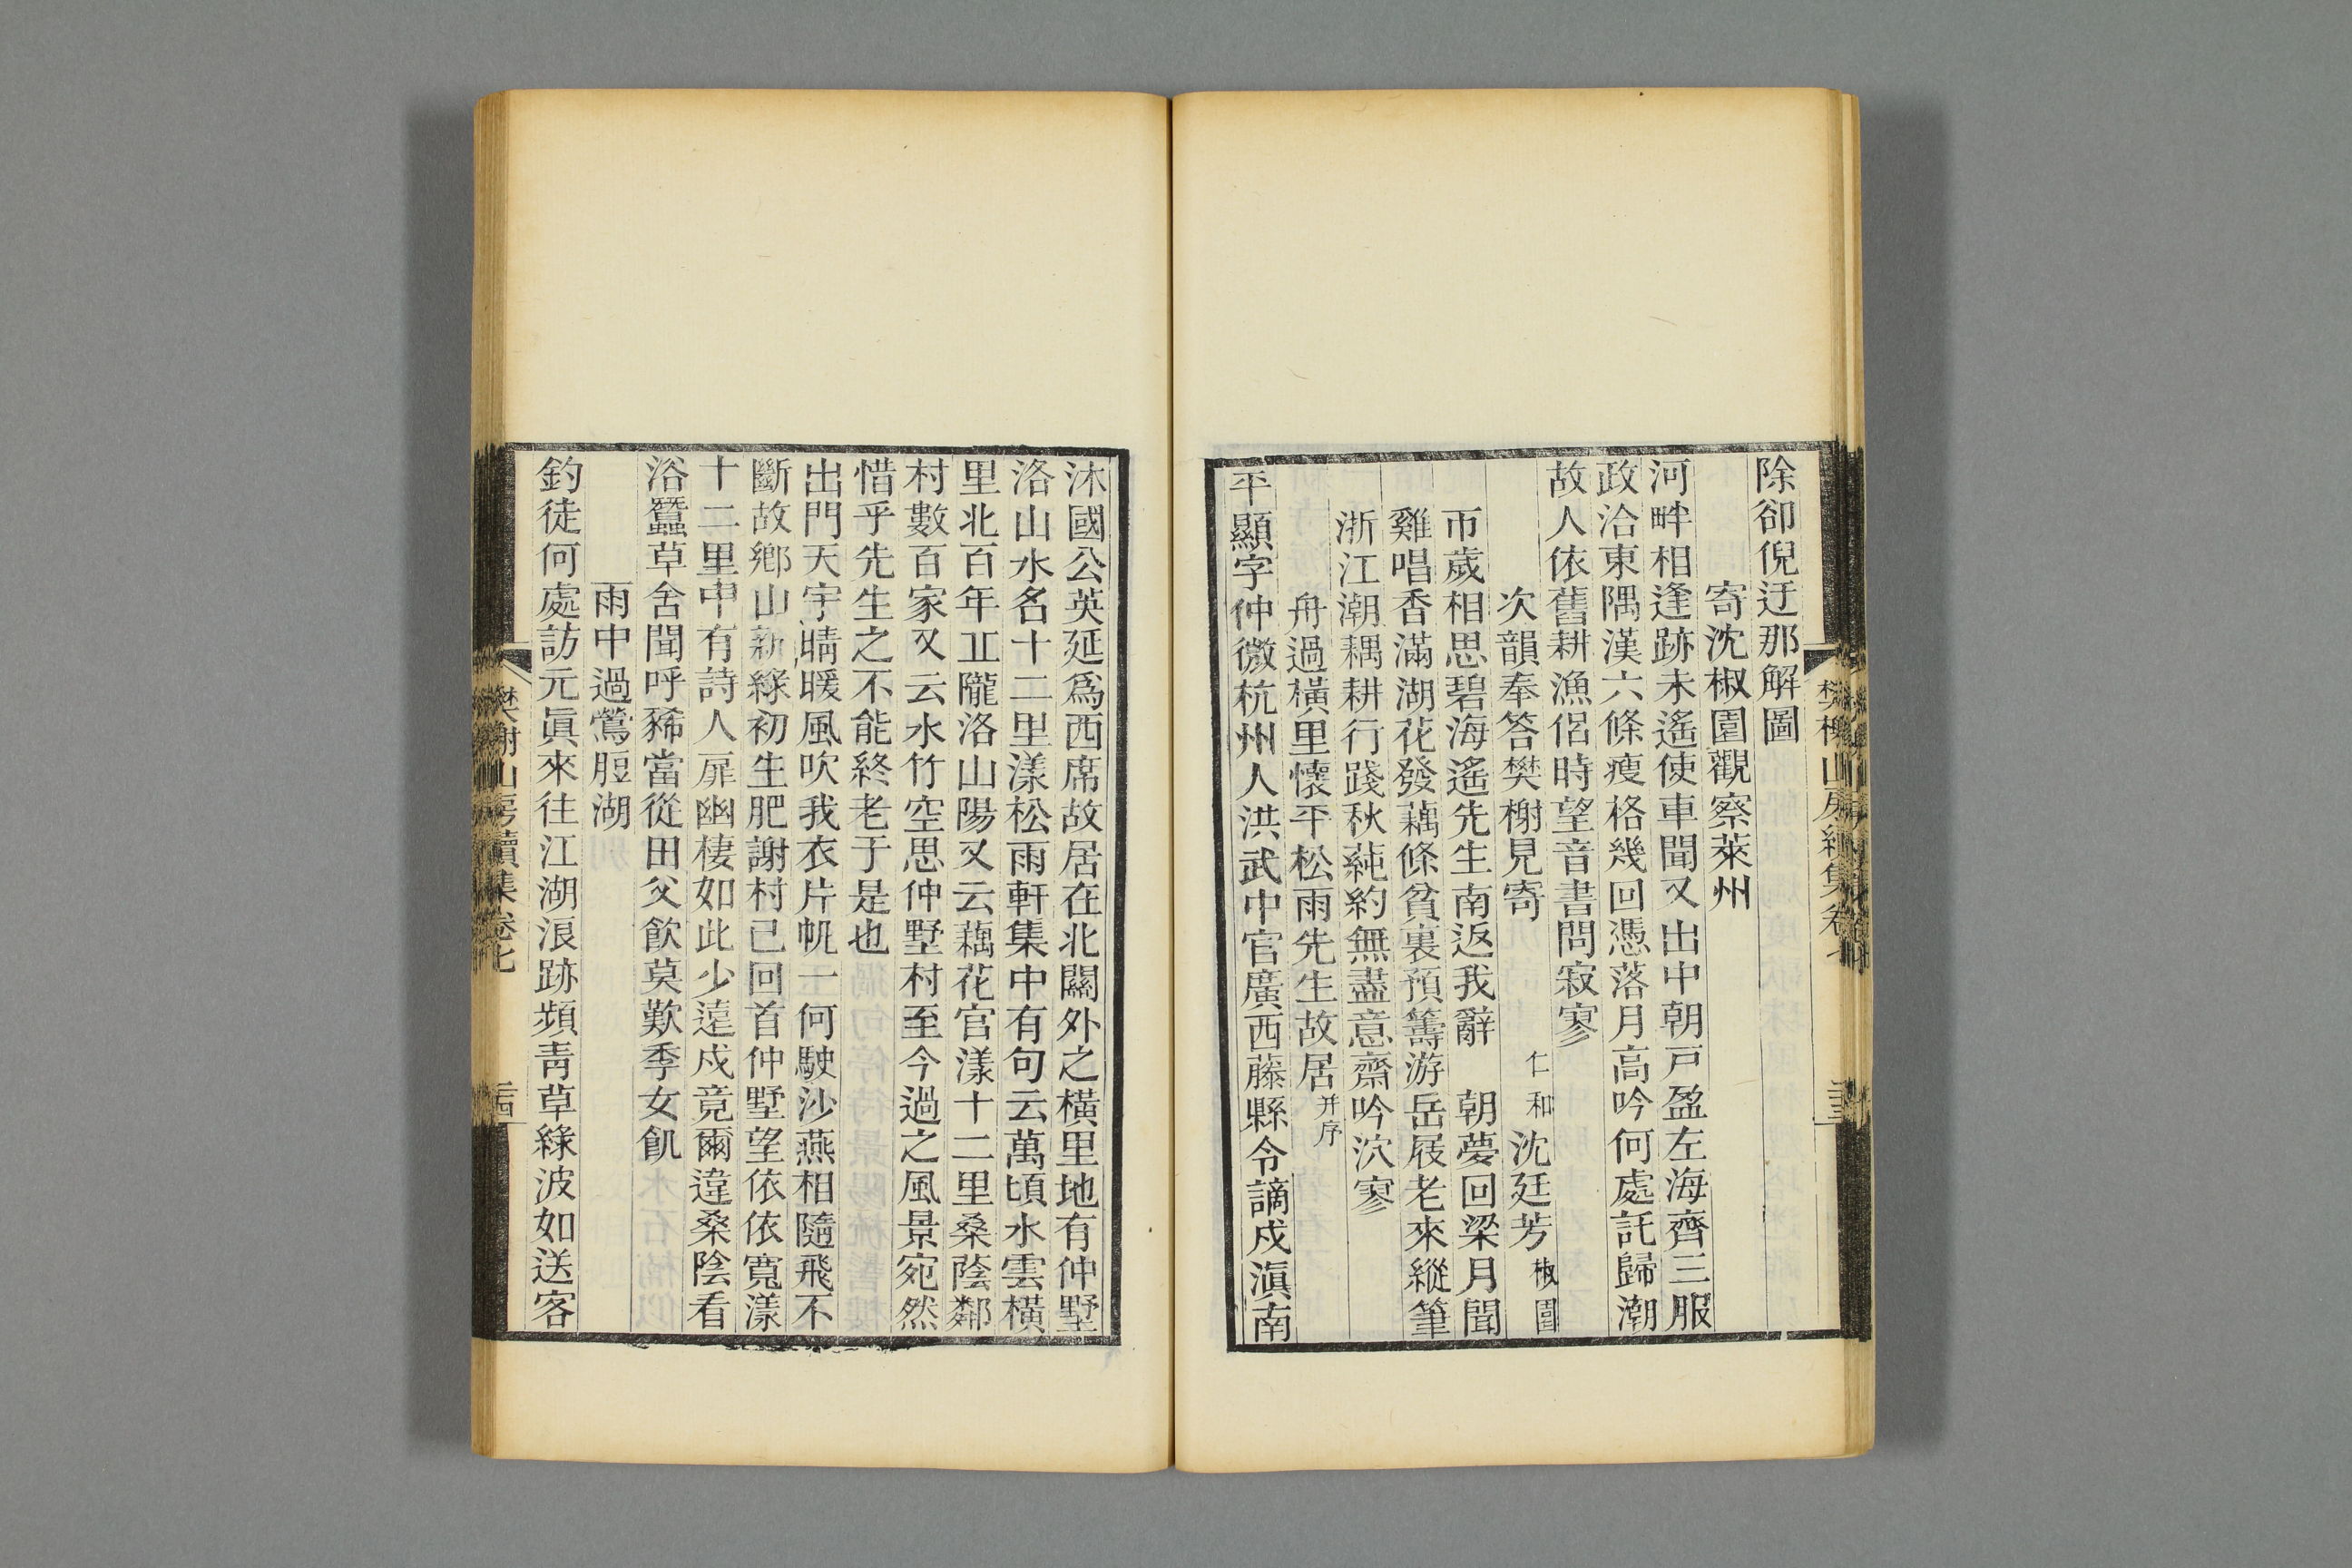 除卻倪迂那解圖
寄沈椒園觀察萊州
河畔相逢跡未遙使車聞又出中朝戸盈左海齊三服
政洽東隅漢六條瘦格幾回憑落月高吟何處託歸潮
故人依舊耕漁侶時望音書問寂寥
次韻奉答樊榭見寄 仁和 沈廷芳 椒園
帀歲相思碧海遙先生南返我辭 朝夢回梁月聞
雞唱香滿湖花發藕條貧裏預籌游岳屐老來縱筆
浙江潮耦耕行踐秋蓴約無盡意齋吟泬寥
舟過橫里懷平松雨先生故居 并序
平顯字仲微杭州人洪武中官廣西藤縣令謫戍滇南
樊榭山房續集卷七
沐國公英延爲西席故居在北關外之橫里地有仲墅
洛山水名十二里漾松雨軒集中有句云萬頃水雲橫
里北百年丘隴洛山陽又云藕花官漾十二里桑蔭鄰
村數百家又云水竹空思仲墅村至今過之風景宛然
惜乎先生之不能終老于是也
出門天宇晴暖風吹我衣片帆一何駛沙燕相隨飛不
斷故鄉山新綠初生肥謝村已回首仲墅望依依寬漾
十二里中有詩人扉幽棲如此少遠戍竟爾違桑陰看
浴蠶草舍聞呼豨當從田父飲莫歎季女飢
雨中過鶯脰湖
釣徒何處訪元眞來往江湖浪跡頻靑草綠波如送客
樊榭山房續集卷七